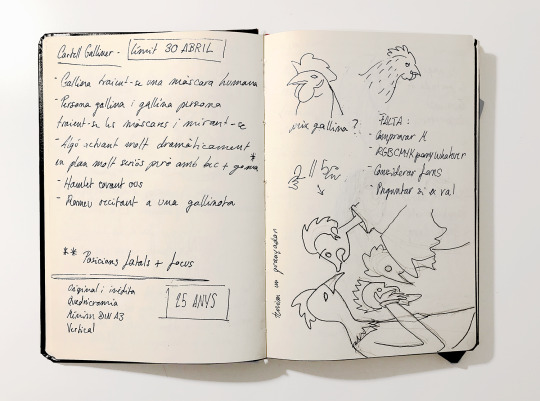 Cartell Galliner - Límit 30 ABRIL
- Gallina traient-se una màscara humana
- Persona gallina i gallina persona
traient-se les màscares i mirant-se
- Algú actuant molt dramàticament
en plan molt seriós però amb bec +
- Hamlet covant ous
- Romeu recitant a una gallineta
** Posicions fatals + focus
Original i inèdita
Quadricromia
Mínim DIN A3
Vertical
25 ANYS
gallina?
FALTA:
- Comprovar
- RGBCMYK pany whatever
- Considerar fons
- Preguntar si es val